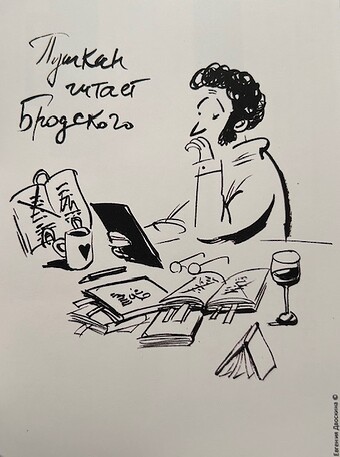 Пушкин
читает
Бродского
Евгения Двоскина ©